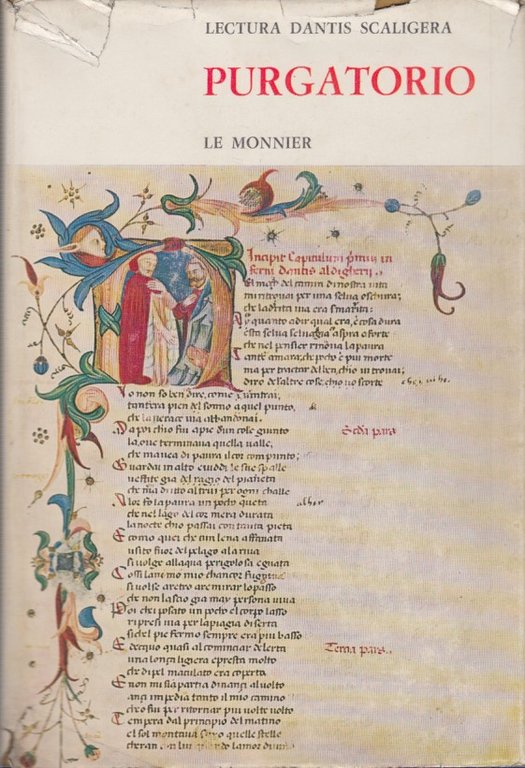 LECTURA DANTIS SCALIGERA
PURGATORIO
LE MONNIER
Incipit Capitulum primum in
ferni dantis aldigherii
El mezo del camin di nostra vita
mi ritrovai per una selva oschura;
che la drita via era smarita:
quanto a dir qual era, e cosa dura
esta selva selvagia aspra e forte
che nel pensier rinova la paura
Tante amara, che pocho e piu morte
ma per tractar del ben, chio vi trovai;
diro del altre cose, chio vo scorte
Io non so ben dire, come
tantera pien del sonno a quel punto,
che la verace via abbandonai.
Da poi chio fui a pie dun cole giunto
la, ove terminava quella valle,
che mavea di paura il cor compunto;
Guardai in alto e viddi le sue spalle
vestite gia del ragio del pianeta
che mena dritto altrui per ogni challe
Alor fo la paura un pocho queta
che nel lago del cor mera durata
la notte chio passai con tanta pieta
E como quei che cun lena affanata
usito fuor del pelago a la riva
si volge allaqua perigolosa e guata
Cossi lanimo mio chancor fugiva
si volse aretro a re mirar lo passo
che non lascio gia mai persona viva
Poi che posato un pocho el corpo lasso
ripresi via per la piagia diserta
si chel pie fermo sempre era piu basso
E
una lonza ligiera e presta molto
che di pel maculato era coperta
E non mi sia partia dinanci al volto
anci impedia tanto il mio camino
chio fui per ritornar piu volte volto
Tempera dal principio del matino
el sol montava
Secunda pars
Tercia pars